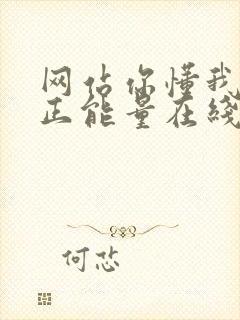 网站你懂我
正能量在线
何忿